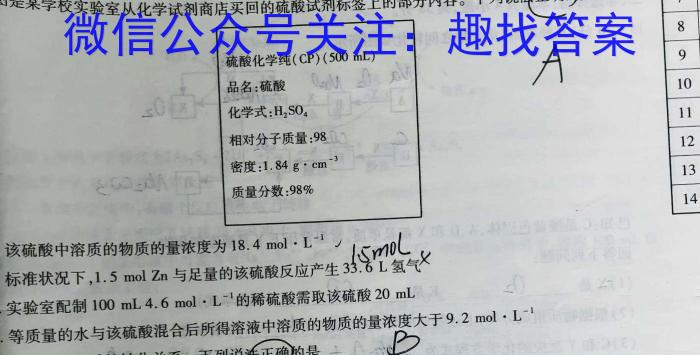 是某学校实验室从化学试剂商店买回的硫酸试剂标签上的部分内容。
微信公众号关注：趣找答案
硫酸化学纯(CP)(500 mL)
品名:硫酸
化学式:H₂SO₄
相对分子质量:98
密度:1.84 g·cm⁻³
质量分数:98%
A
8
9
10
11
12
13
14
该硫酸中溶质的物质的量浓度为18.4 mol·L⁻¹ ✓
1.5mol
标准状况下,1.5 mol Zn与足量的该硫酸反应产生33.6 L氢气 ×
实验室配制100 mL 4.6 mol·L⁻¹的稀硫酸需取该硫酸20 mL
.等质量的水与该硫酸混合后所得溶液中溶质的物质的量浓度大于9.2 mol·L⁻¹
下列说法正确的是
B